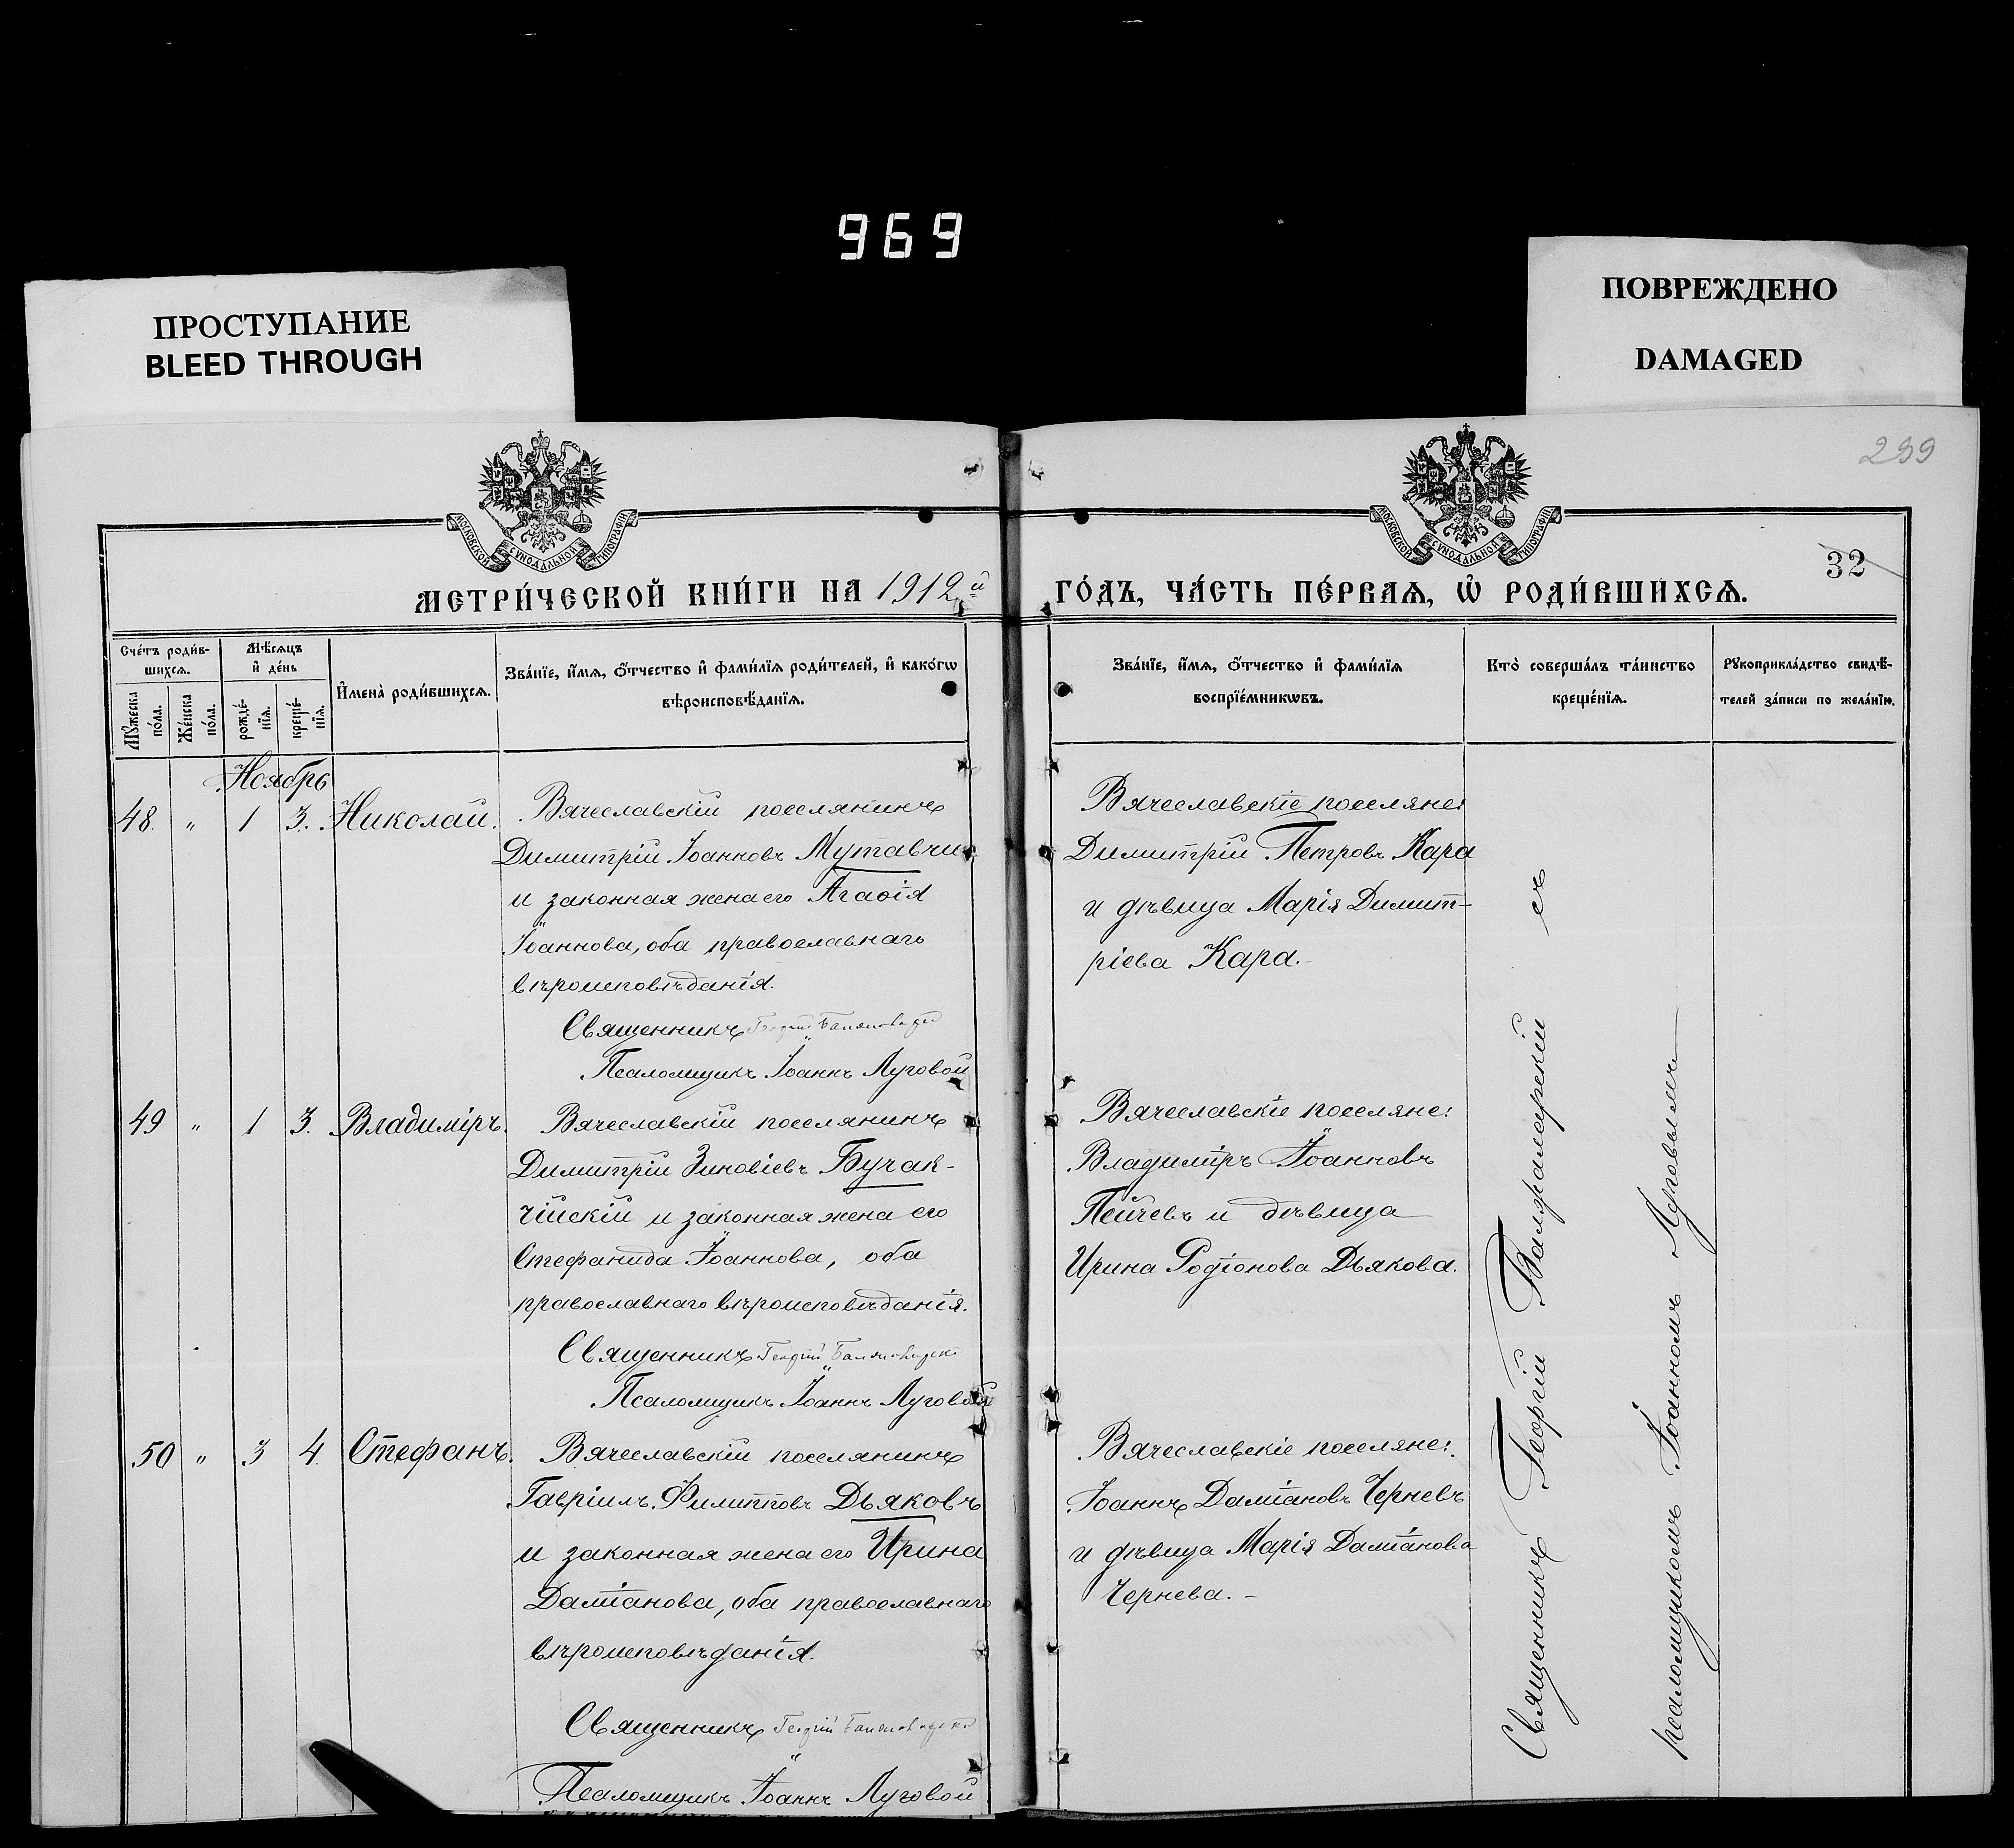 969
ПРОСТУПАНИЕ
BLEED THROUGH
ПОВРЕЖДЕНО
DAMAGED
299
32
МОСКОВСКОЙ СѴНОДАЛЬНОЙ ТИПОГРАФІИ
МОСКОВСКОЙ СѴНОДАЛЬНОЙ ТИПОГРАФІИ
МЕТРИ́ЧЕСКОЙ КНИ́ГИ НА 1912й ГО́ДЪ, ЧА́СТЬ ПЕ́РВАѦ, Ѡ҆ РОДИ́ВШИХСѦ.
Сче́тъ роди́в-
шихсѧ.
Мꙋ́жеска
по́ла.
Же́нска
по́ла.
Мѣ́сѧцъ
и҆ де́нь
рожде́-
нїѧ.
креще́-
нїѧ.
И҆мена̀ роди́вшихсѧ.
Зва́нїе, и҆́мѧ, ѻ҆́тчество и҆ фами́лїѧ роди́телей, и҆ како́гѡ
вѣроисповѣ́данїѧ.
Зва́нїе, и҆́мѧ, ѻ҆́тчество и҆ фами́лїѧ
воспрїе́мникѡвъ.
Кто̀ соверша́лъ та́инство
креще́нїѧ.
Рꙋкоприкла́дство свидѣ́-
телей за́писи по жела́нїю.
Ноябрь
48. " 1 3. Николай.
Вячеславскій поселянинъ
Димитрій Іоанновъ Мутавчи
и законная жена его Агаѳія
Іоаннова, оба православнаго
вѣроисповѣданія.
Священникъ Георгій
Псаломщикъ Іоаннъ Луговой
Вячеславскіе поселяне:
Димитрій Петровъ Кара
и дѣвица Марія Димит-
ріева Кара.-
49 " 1 3. Владиміръ.
Вячеславскій поселянинъ
Димитрій Зиновіевъ Бучак-
чійскій и законная жена его
Стефанида Іоаннова, оба
православнаго вѣроисповѣданія.
Священникъ Георгій
Псаломщикъ Іоаннъ Луговой
Вячеславскіе поселяне:
Владиміръ Іоанновъ
Пейчевъ и дѣвица
Ирина Родіонова Дьякова.
50 " 3 4. Стефанъ.
Вячеславскій поселянинъ
Гавріилъ Филипповъ Дьяковъ
и законная жена его Ирина
Даміанова, оба православнаго
вѣроисповѣданія.
Священникъ Георгій
Псаломщикъ Іоаннъ Луговой
Вячеславскіе поселяне:
Іоаннъ Даміановъ Черневъ
и дѣвица Марія Даміанова
Чернева.-
Священникъ Георгій съ
псаломщикомъ Іоанномъ Луговымъ